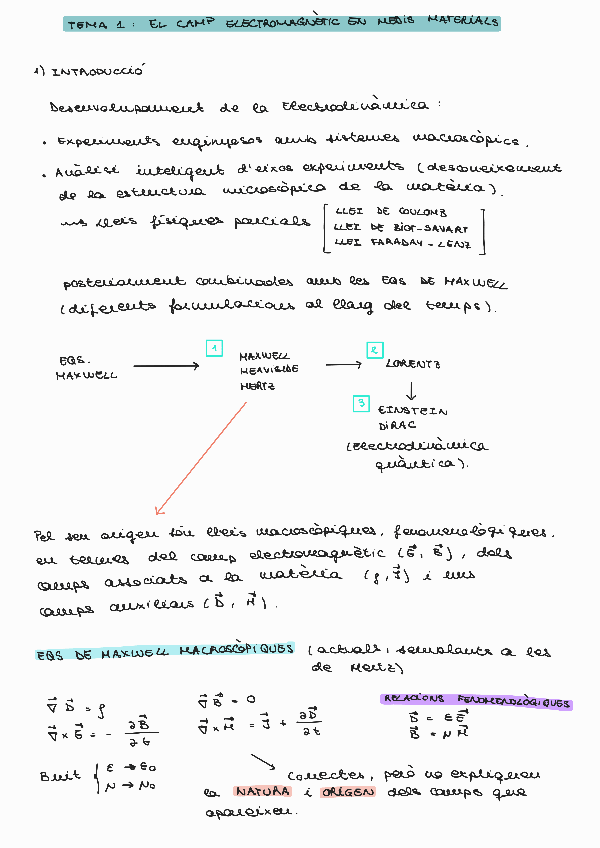 TEMA 1: EL CAMP ELECTROMAGNÈTIC EN MEDIS MATERIALS
1) INTRODUCCIÓ
Desenvolupament de la Electrodinàmica:
• Experiments enginyosos amb sistemes macroscòpics.
• Anàlisi inteligent d'eixos experiments (desconeixement
de la estructura microscòpica de la matèria).
uns lleis físiques parcials
LLEI DE COULOMB
LLEI DE BIOT-SAVART
LLEI FARADAY-LENZ
posteriorment combinades amb les EQS DE MAXWELL
(diferents formulacions al llarg del temps).
EQS.
MAXWELL
1
MAXWELL
HEAVISIDE
HERTZ
2
LORENTZ
3
EINSTEIN
DIRAC
(Electrodinàmica
quàntica).
Pel seu origen són lleis macroscòpiques, fenomenològiques,
en termes del camp electromagnètic (E⃗, B⃗), dels
camps associats a la matèria (ρ, J⃗) i uns
camps auxiliars (D⃗, H⃗).
EQS DE MAXWELL MACROSCÒPIQUES (actuals, semblants a les
de Hertz)
∇⃗ D⃗ = ρ
∇⃗ B⃗ = 0
∇⃗ × E⃗ = - ∂B⃗/∂t
∇⃗ × H⃗ = J⃗ + ∂D⃗/∂t
RELACIONS FENOMENOLÒGIQUES
D⃗ = εE⃗
B⃗ = μH⃗
Buit { ε → ε₀
μ → μ₀
Correctes, però no expliquen
la NATURA i ORIGEN dels camps que
apareixen.